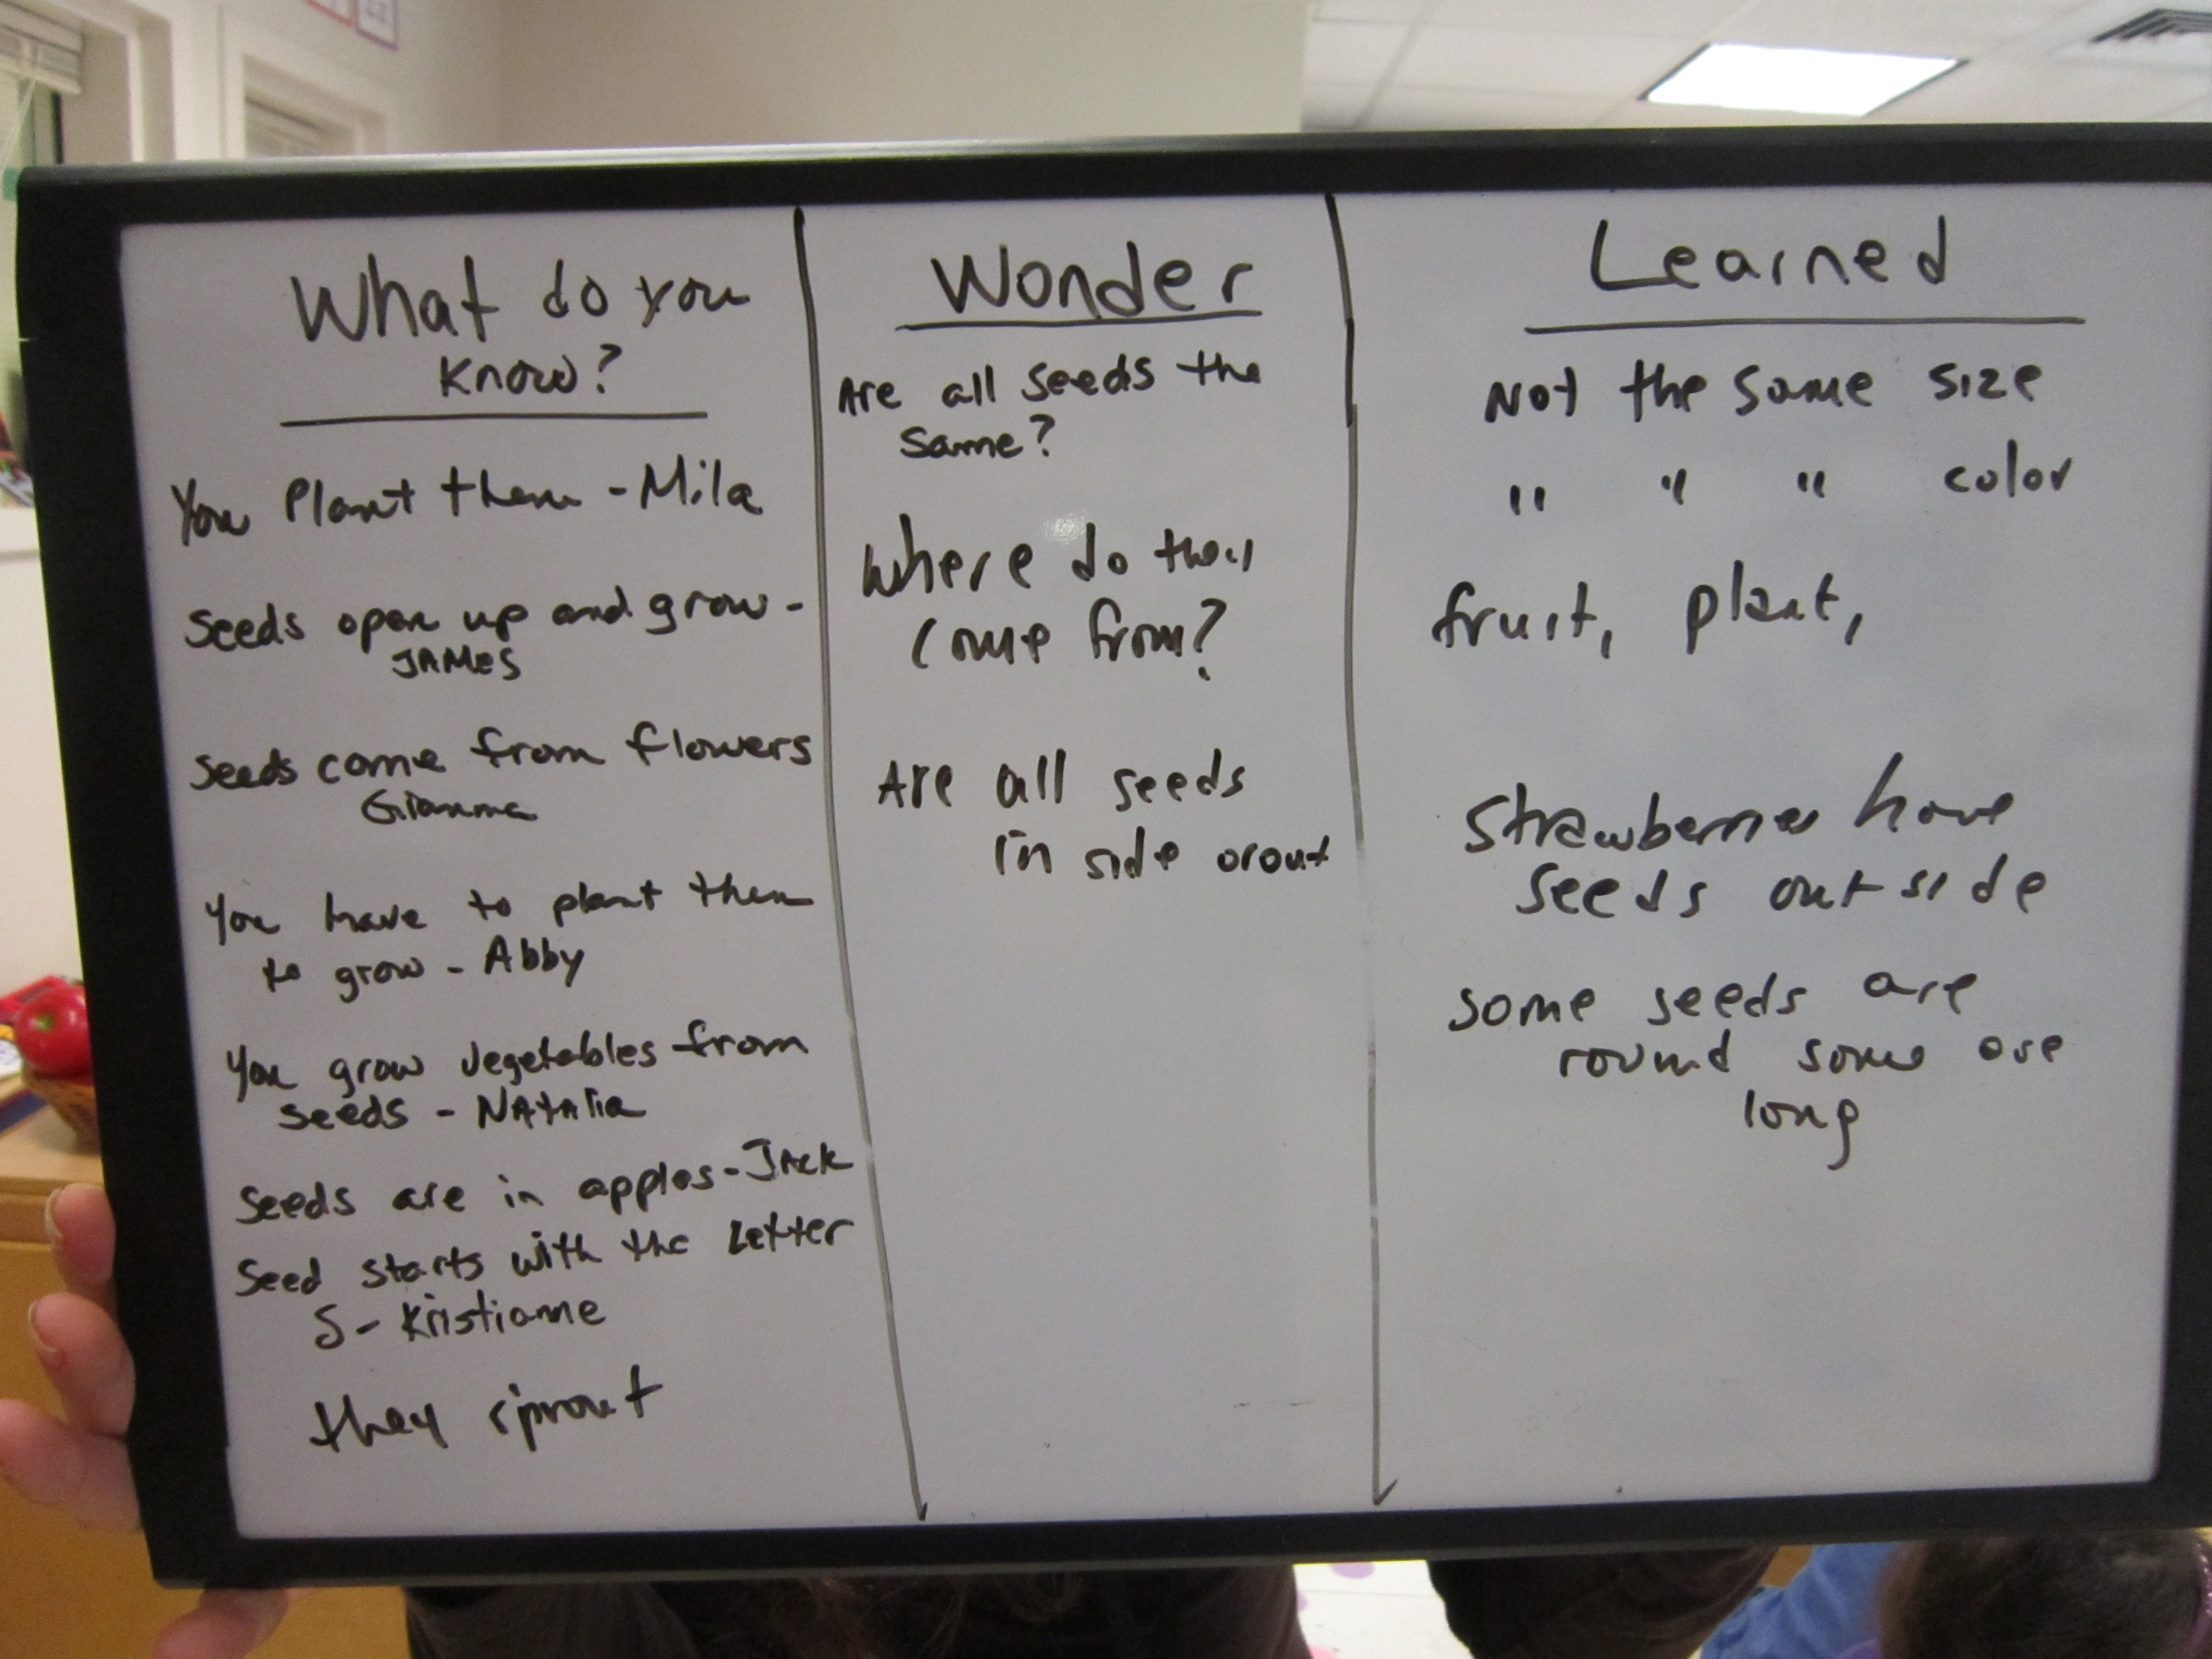 What do you
know?
You Plant them - Mila
Seeds open up and grow -
JAMES
Seeds come from flowers
Gianna
You have to plant them
to grow - Abby
You grow vegetables from
seeds - NAtAlia
Seeds are in apples - JAck
Seed starts with the Letter
S - Kristianne
they sprout
Wonder
Are all seeds the
same?
Where do they
come from?
Are all seeds
in side or out
Learned
Not the same size
" " " color
fruit, plant,
Strawberries have
seeds outside
some seeds are
round some are
long